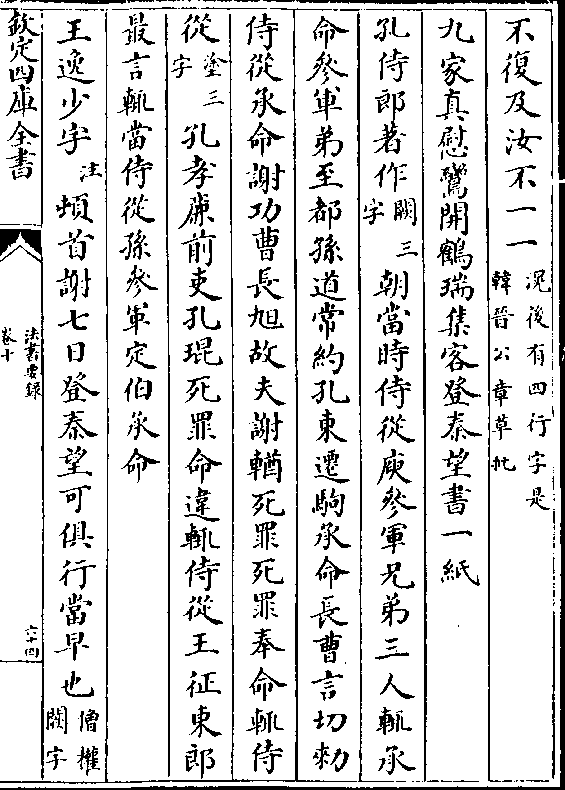 不復及汝不一一況後有四行字是韓晉公章草批
九家真慰鸞開鶴瑞集客登秦望書一紙
孔侍郎著作闕三字朝當時侍從庾參軍兄弟三人輒承
命參軍弟至都孫道常約孔東遷駒承命長曹言切勑
侍從承命謝功曹長旭故夫謝輶死罪死罪奉命輒侍
從塗三字孔孝廉前吏孔琨死罪命違輒侍從王征東郎
最言輒當侍從孫參軍定伯承命
王逸少字注頓首謝七日登秦望可俱行當早也僧權闕字
欽定四庫全書
法書要錄
卷十
六十四